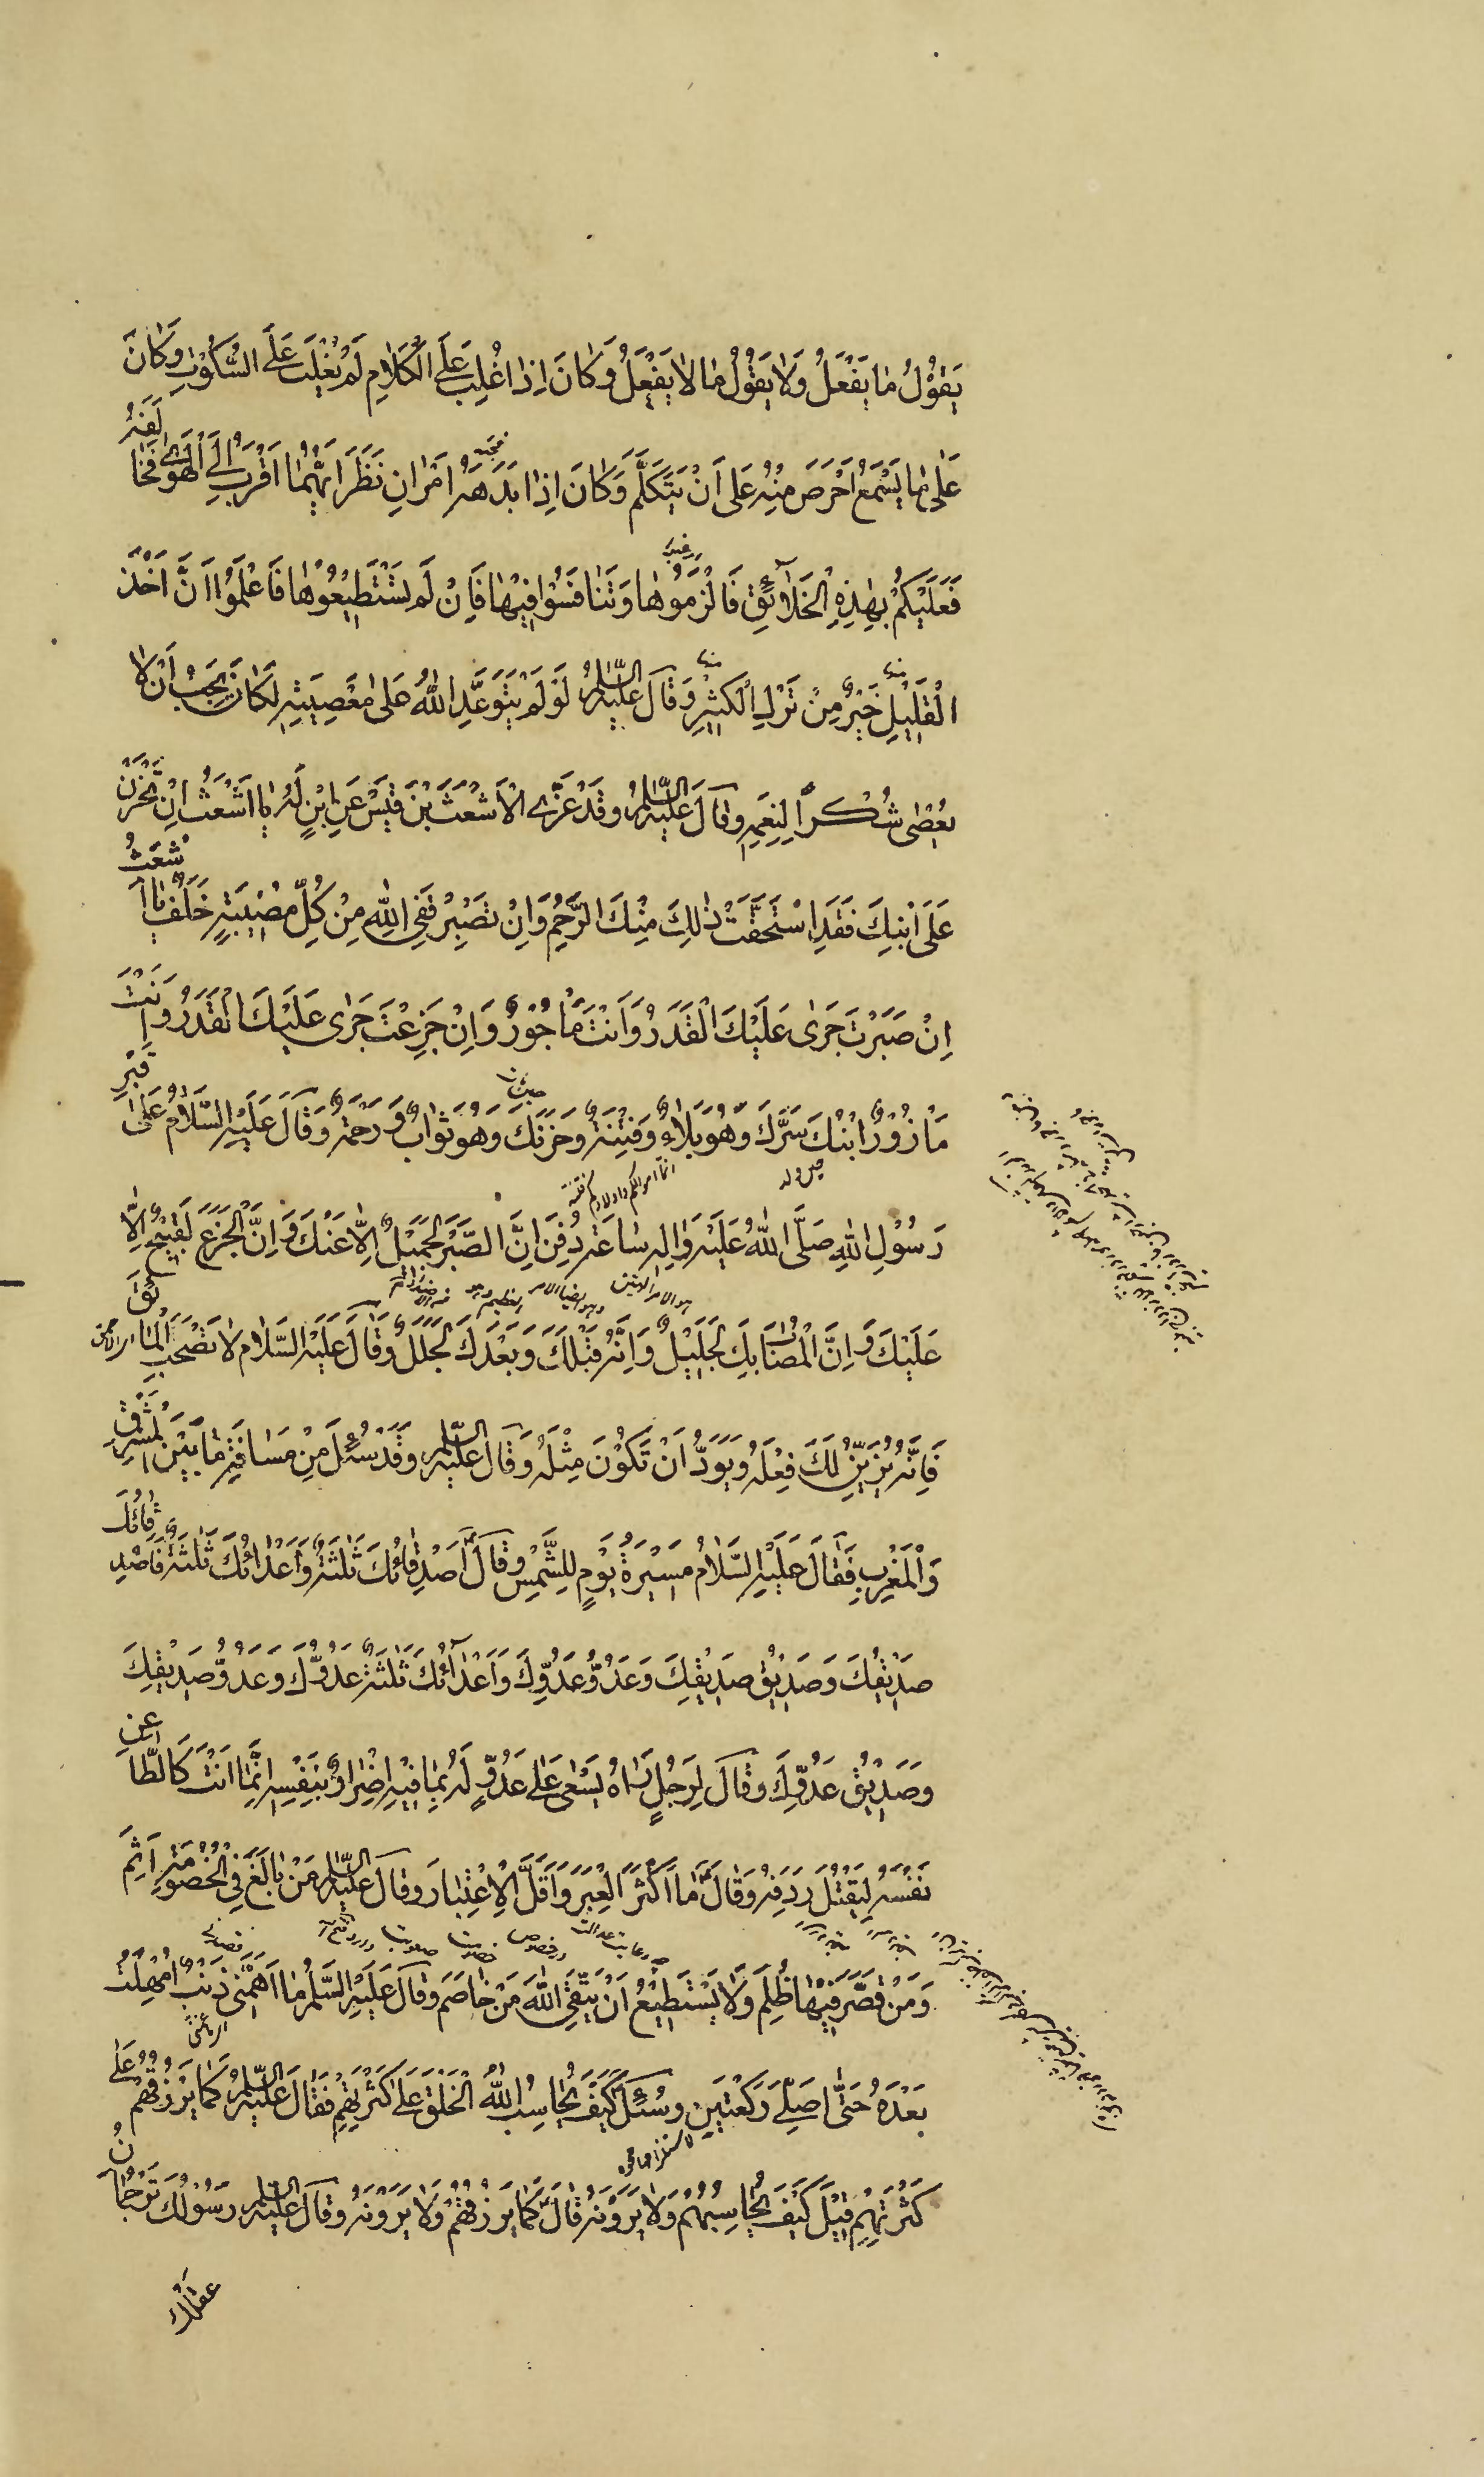 يَقُوْلُ مَا يَفْعَلُ وَلَا يَقُوْلُ مَا لَا يَفْعَلُ وَكَانَ اِذَا غُلِبَ عَلَى الْكَلَامِ لَمْ يُغْلَبْ عَلَى السُّكُوْتِ وَكَانَ
عَلٰى مَا يَسْمَعُ اَحْرَصَ مِنْهُ عَلٰى اَنْ يَتَكَلَّمَ وَكَانَ اِذَا بَدَهَهُ اَمْرَانِ نَظَرَ اَيُّهُمَا اَقْرَبُ اِلَى الْهَوٰى فَخَالَفَهُ
فَعَلَيْكُمْ بِهٰذِهِ الْخَلَآئِقِ فَالْزَمُوْهَا وَتَنَافَسُوْا فِيْهَا فَاِنْ لَمْ تَسْتَطِيْعُوْهَا فَاعْلَمُوْا اَنَّ اَخْذَ
الْقَلِيْلِ خَيْرٌ مِنْ تَرْكِ الْكَثِيْرِ وَقَالَ عَلَيْهِ السَّلَامُ لَوْ لَمْ يَتَوَعَّدِ اللّٰهُ عَلٰى مَعْصِيَتِهِ لَكَانَ يَجِبُ اَنْ لَا
يُعْصٰى شُكْرًا لِنِعَمِهِ وَقَالَ عَلَيْهِ السَّلَامُ وَقَدْ عَزَّى الْاَشْعَثَ بْنَ قَيْسٍ عَنِ ابْنٍ لَهُ يَا اَشْعَثُ اِنْ تَحْزَنْ
عَلَى ابْنِكَ فَقَدِ اسْتَحَقَّتْ ذٰلِكَ مِنْكَ الرَّحِمُ وَاِنْ تَصْبِرْ فَفِي اللّٰهِ مِنْ كُلِّ مُصِيْبَةٍ خَلَفٌ يَا اَشْعَثُ
اِنْ صَبَرْتَ جَرٰى عَلَيْكَ الْقَدَرُ وَاَنْتَ مَأْجُوْرٌ وَاِنْ جَزِعْتَ جَرٰى عَلَيْكَ الْقَدَرُ وَاَنْتَ
مَأْزُوْرٌ اِبْنُكَ سَرَّكَ وَهُوَ بَلَاءٌ وَفِتْنَةٌ وَحَزَنَكَ وَهُوَ ثَوَابٌ وَرَحْمَةٌ وَقَالَ عَلَيْهِ السَّلَامُ عَلٰى قَبْرِ
رَسُوْلِ اللّٰهِ صَلَّى اللّٰهُ عَلَيْهِ وَاٰلِهِ سَاعَةَ دُفِنَ اِنَّ الصَّبْرَ لَجَمِيْلٌ اِلَّا عَنْكَ وَاِنَّ الْجَزَعَ لَقَبِيْحٌ اِلَّا
عَلَيْكَ وَاِنَّ الْمُصَابَ بِكَ لَجَلِيْلٌ وَاِنَّهُ قَبْلَكَ وَبَعْدَكَ لَجَلَلٌ وَقَالَ عَلَيْهِ السَّلَامُ لَا تَصْحَبِ الْمَائِقَ
فَاِنَّهُ يُزَيِّنُ لَكَ فِعْلَهُ وَيَوَدُّ اَنْ تَكُوْنَ مِثْلَهُ وَقَالَ عَلَيْهِ السَّلَامُ وَقَدْ سُئِلَ عَنْ مَسَافَةِ مَا بَيْنَ الْمَشْرِقِ
وَالْمَغْرِبِ فَقَالَ عَلَيْهِ السَّلَامُ مَسِيْرَةُ يَوْمٍ لِلشَّمْسِ وَقَالَ اَصْدِقَائُكَ ثَلٰثَةٌ وَاَعْدَائُكَ ثَلٰثَةٌ فَاَصْدِقَائُكَ
صَدِيْقُكَ وَصَدِيْقُ صَدِيْقِكَ وَعَدُوُّ عَدُوِّكَ وَاَعْدَآئُكَ ثَلٰثَةٌ عَدُوُّكَ وَعَدُوُّ صَدِيْقِكَ
وَصَدِيْقُ عَدُوِّكَ وَقَالَ لِرَجُلٍ رَاٰهُ يَسْعٰى عَلٰى عَدُوٍّ لَهُ بِمَا فِيْهِ اِضْرَارٌ بِنَفْسِهِ اِنَّمَا اَنْتَ كَالطَّاعِنِ
نَفْسَهُ لِيَقْتُلَ رِدْفَهُ وَقَالَ مَا اَكْثَرَ الْعِبَرَ وَاَقَلَّ الْاِعْتِبَارَ وَقَالَ عَلَيْهِ السَّلَامُ مَنْ بَالَغَ فِي الْخُصُوْمَةِ اَثِمَ
وَمَنْ قَصَّرَ فِيْهَا ظُلِمَ وَلَا يَسْتَطِيْعُ اَنْ يَتَّقِيَ اللّٰهَ مَنْ خَاصَمَ وَقَالَ عَلَيْهِ السَّلٰمُ مَا اَهَمَّنِيْ ذَنْبٌ اُمْهِلْتُ
بَعْدَهُ حَتّٰى اُصَلِّيَ رَكْعَتَيْنِ وَسُئِلَ كَيْفَ يُحَاسِبُ اللّٰهُ الْخَلْقَ عَلٰى كَثْرَتِهِمْ فَقَالَ عَلَيْهِ السَّلَامُ كَمَا يَرْزُقُهُمْ عَلٰى
كَثْرَتِهِمْ قِيْلَ كَيْفَ يُحَاسِبُهُمْ وَلَا يَرَوْنَهُ قَالَ كَمَا يَرْزُقُهُمْ وَلَا يَرَوْنَهُ وَقَالَ عَلَيْهِ السَّلَامُ رَسُوْلُكَ تَرْجُمَانُ
عقلك